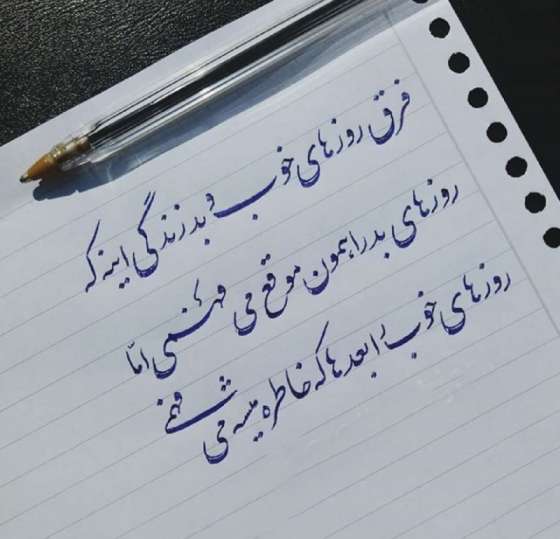 فرق روزهای خوب و بد زندگی اینه که
روزهای بد را همون موقع می فهمی امّا
روزهای خوب را بعدها که خاطره میشه می فهمی